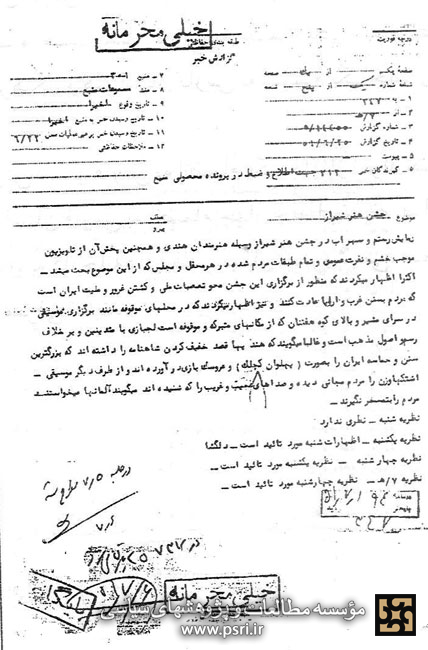 خیلی محرمانه
طبقه بندی حفاظتی
درجه فوریت
گزارش خبر
صفحه یکم از یک صفحه
نسخه شماره یک از پنج نسخه
۱ - به ۳۴۷
۲ - از ۷/ه
۳ - شماره گزارش
۴ - تاریخ گزارش
۵ - پیوست
۵ - گیرندگان خبر ۳۱۲ جهت اطلاع و ضبط در پرونده محصولی منبع
۷ - منبع
۸ - منشاء مسموعات منبع
۹ - تاریخ وقوع اخیرا
۱۰ - تاریخ رسیدن خبر به منبع اخیرا
۱۱ - تاریخ رسیدن خبر برهبر عملیات ۶/۲۲
۱۲ - ملاحظات حفاظتی
موضوع جشن هنر شیراز
عطف
پیرو
نمایش رستم و سهراب در جشن هنر شیراز وسیله هنرمندان هندی و همچنین پخش آن از تلویزیون
موجب خشم و نفرت عمومی و تمام طبقات مردم شده در هر محفل و مجلس که از این موضوع بحث میشد -
اکثرا اظهار میکردند که منظور از برگزاری این جشن محو تعصبات ملی و کشتن غرور و ملیت ایران است
که مردم بسنن غرب و اروپا عادت کنند و نیز اظهار میکردند که در محلهای موقوفه مانند برگزاری موسیقی
در سرای مشیر و بالای کوه هفتتان که از مکانهای متبرکه و موقوفه است لجبازی با متدینین و بر خلاف
رسم و اصول مذهب است و غالبا میگویند که هندیها قصد خفیف کردن شاهنامه را داشته اند که بزرگترین
سنن و حماسه ایران را بصورت (پهلوان کچلک) و عروسک بازی در آورده اند و از طرف دیگر موسیقی -
اشتکهاوزن را مردم مجانی دیده و صداهای عجیب و غریب را که شنیده اند میگویند آلمانها میخواستند
مردم را بتمسخر نگیرند -
نظریه شنبه - نظری ندارد
نظریه یکشنبه - اظهارات شنبه مورد تائید است - دلگشا
نظریه چهارشنبه - نظریه یکشنبه مورد تائید است -
نظریه ۷/ه - نظریه چهارشنبه مورد تائید است -
خیلی محرمانه
بایگانی
مؤسسه مطالعات و پژوهشهای سیاسی
www.psri.ir